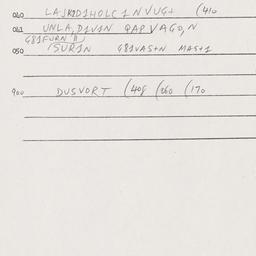 040 LAJKOD1HOLC 1 NVUG+ (410
041 UNLA, D1V1N QAPVAGO, N
G81FURN
050 (SUR1N G81VAS+N MAS+1
900 DUSVORT (408 (060 (170